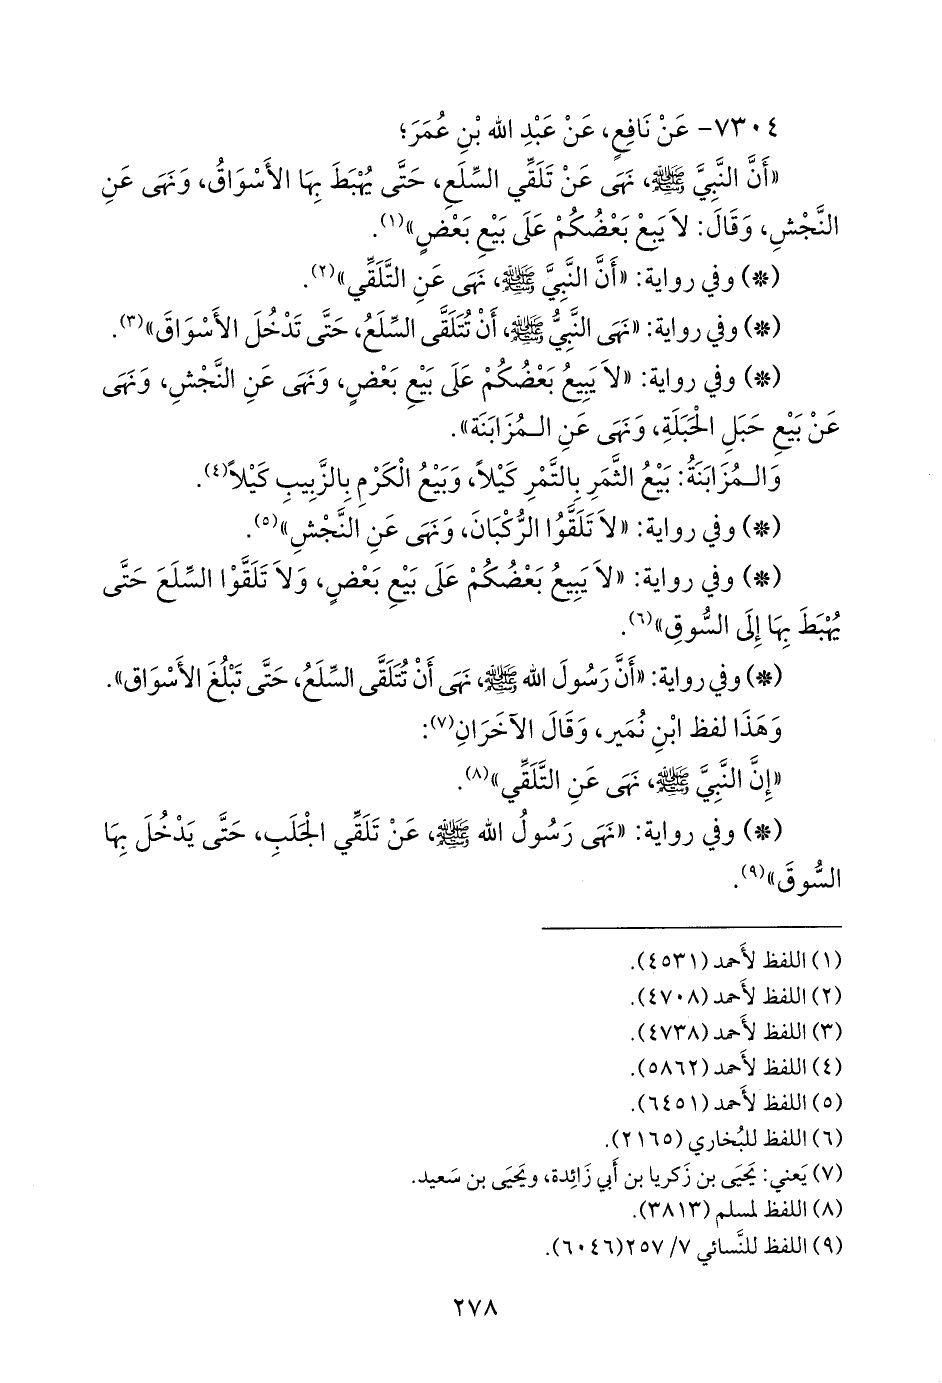 ٧٣٠٤- عَنْ نَافِعٍ، عَنْ عَبْدِ الله بْنِ عُمَرَ؛
«أَنَّ النَّبِيَّ ﷺ، نَهَى عَنْ تَلَقِّي السِّلَعِ، حَتَّى يُهْبَطَ بِهَا الأَسْوَاقُ، وَنَهَى عَنِ
النَّجْشِ، وَقَالَ: لاَ يَبِعْ بَعْضُكُمْ عَلَى بَيْعِ بَعْضٍ»(١).
(*) وفي رواية: «أَنَّ النَّبِيَّ ﷺ، نَهَى عَنِ التَّلَقِّي»(٢).
(*) وفي رواية: «نَهَى النَّبِيُّ ﷺ، أَنْ تُتَلَقَّى السِّلَعُ، حَتَّى تَدْخُلَ الأَسْوَاقَ»(٣).
(*) وفي رواية: «لاَ يَبِيعُ بَعْضُكُمْ عَلَى بَيْعِ بَعْضٍ، وَنَهَى عَنِ النَّجْشِ، وَنَهَى
عَنْ بَيْعِ حَبَلِ الْحَبَلَةِ، وَنَهَى عَنِ الْـمُزَابَنَة».
وَالـمُزَابَنَةُ: بَيْعُ الثَّمَرِ بِالتَّمْرِ كَيْلاً، وَبَيْعُ الْكَرْمِ بِالزَّبِيبِ كَيْلاً(٤).
(*) وفي رواية: «لاَ تَلَقَّوُا الرُّكْبَانَ، وَنَهَى عَنِ النَّجْشِ»(٥).
(*) وفي رواية: «لاَ يَبِيعُ بَعْضُكُمْ عَلَى بَيْعِ بَعْضٍ، وَلاَ تَلَقَّوْا السِّلَعَ حَتَّى
يُهْبَطَ بِهَا إِلَى السُّوقِ»(٦).
(*) وفي رواية: «أَنَّ رَسُولَ الله ﷺ، نَهَى أَنْ تُتَلَقَّى السِّلَعُ، حَتَّى تَبْلُغَ الأَسْوَاق».
وَهَذَا لفظ ابْنِ نُمَير، وَقَالَ الآخَرَانِ(٧):
«إِنَّ النَّبِيَّ ﷺ، نَهَى عَنِ التَّلَقِّي»(٨).
(*) وفي رواية: «نَهَى رَسُولُ الله ﷺ، عَنْ تَلَقِّي الْجَلَبِ، حَتَّى يَدْخُلَ بِهَا
السُّوقَ»(٩).
(١) اللفظ لأَحمد (٤٥٣١).
(٢) اللفظ لأَحمد (٤٧٠٨).
(٣) اللفظ لأَحمد (٤٧٣٨).
(٤) اللفظ لأَحمد (٥٨٦٢).
(٥) اللفظ لأَحمد (٦٤٥١).
(٦) اللفظ للبُخاري (٢١٦٥).
(٧) يَعني: يَحيَى بن زَكريا بن أَبي زَائِدة، ويَحيَى بن سَعيد.
(٨) اللفظ لمسلم (٣٨١٣).
(٩) اللفظ للنَّسائي ٧/ ٢٥٧(٦٠٤٦).
٢٧٨